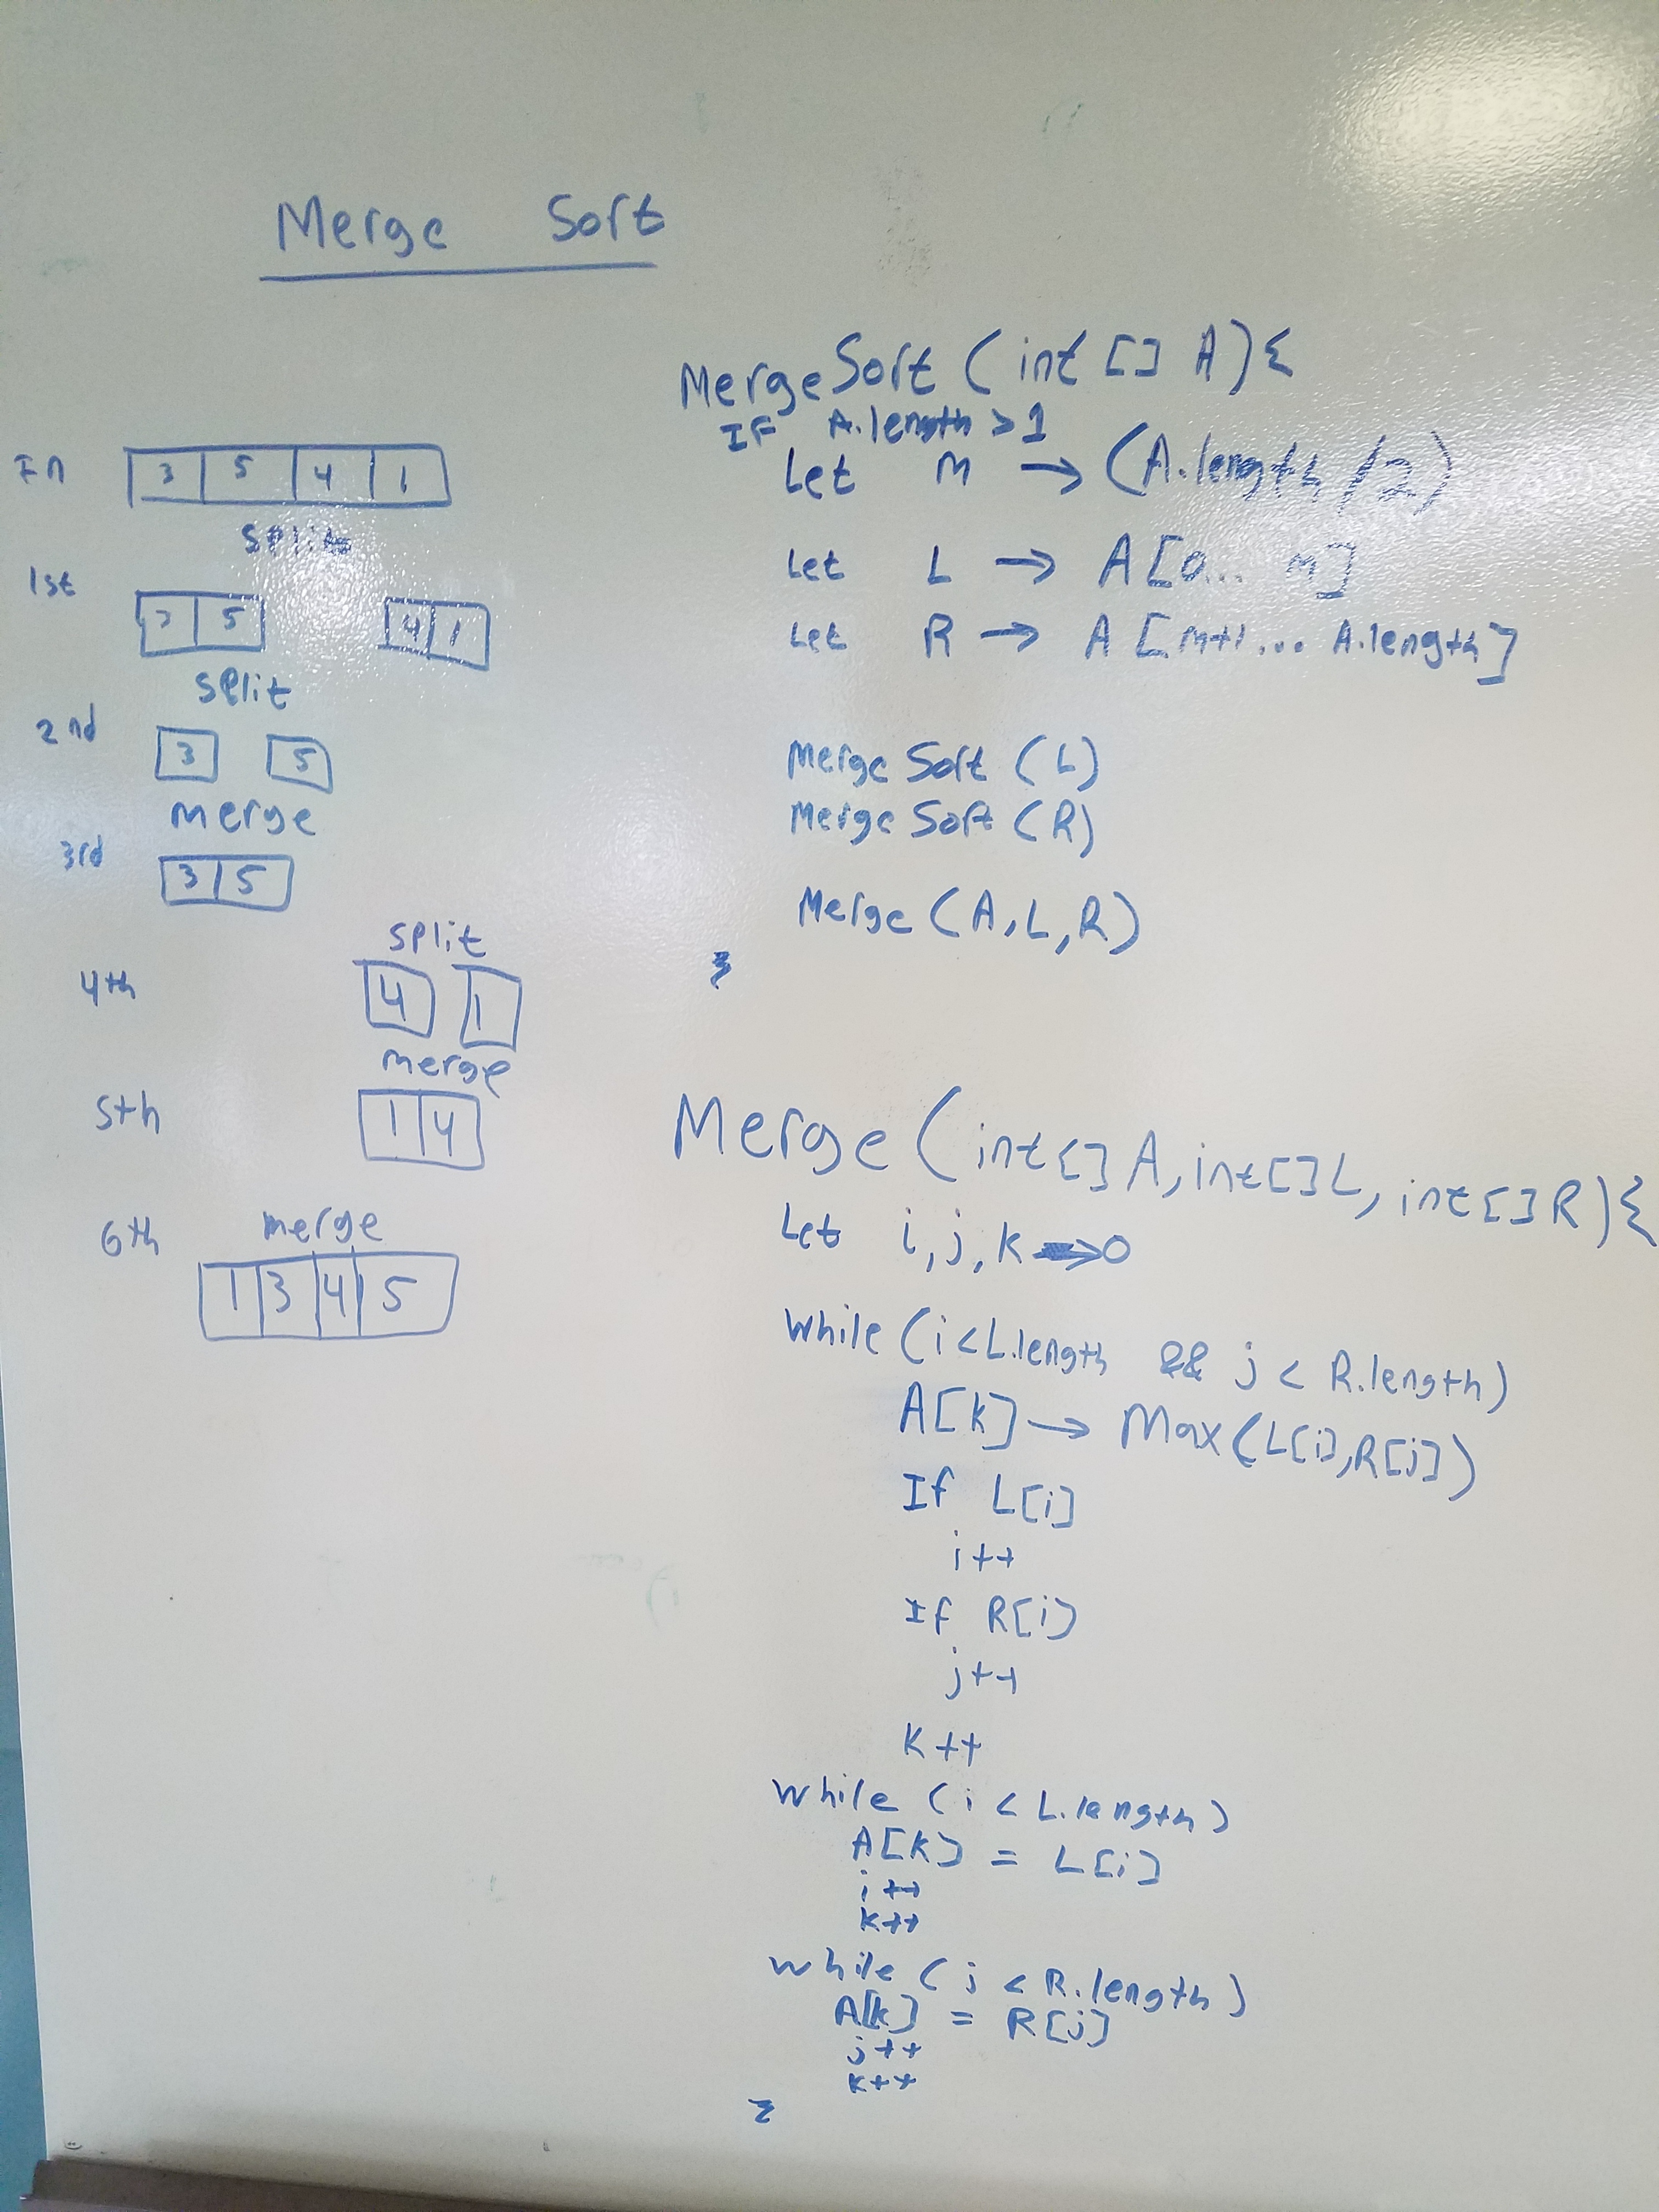 Merge Sort
In 3 5 4 1
split
1st 3 5 4 1
split
2nd 3 5
merge
3rd 3 5
split
4th 4 1
merge
5th 1 4
6th merge
1 3 4 5
MergeSort (int [] A) {
IF A.length > 1
Let M → (A.length/2)
Let L → A[0... m]
Let R → A[m+1... A.length]
Merge Sort (L)
Merge Sort (R)
Merge (A, L, R)
}
Merge (int[] A, int[] L, int[] R) {
Let i, j, k → 0
While (i < L.length && j < R.length)
A[k] → Max(L[i], R[j])
If L[i]
i++
If R[i]
j++
k++
while (i < L.length)
A[k] = L[i]
i++
k++
while (j < R.length)
A[k] = R[j]
j++
k++
}